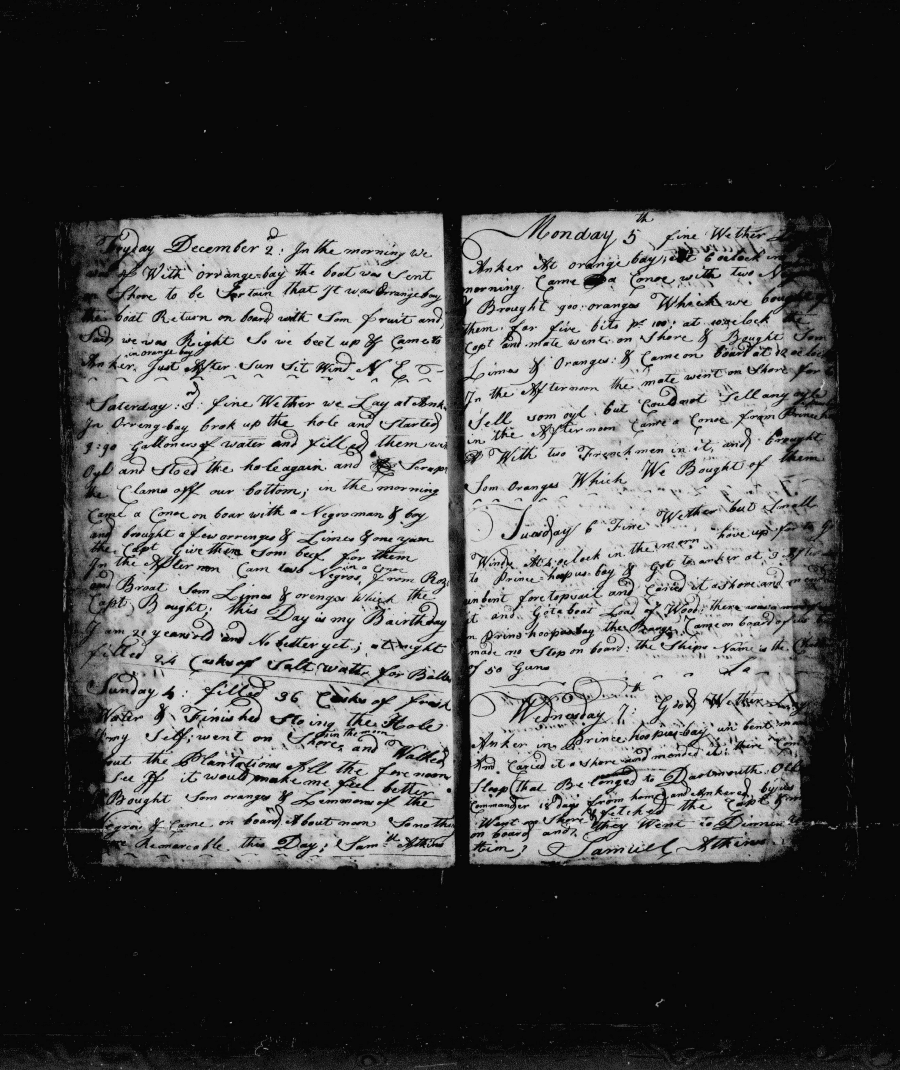 Fryday December 2d: In the morning we
With orrange-bay the boat was Sent
on Shore to be Sertain that it was Orrangebay
the boat Return on board with Som fruit and
Said we was Right So we beet up & Came to
in orange bay
Anker Just After Sun Sit Wind N E
Saturday: 3d: fine Wether we Lay at Ank
In Orreng-bay brok up the hole and Started
gallons of water and filled them
Oyl and Stoed the hole again and Scrap
the Clams off our bottom; in the morning
Came a Conoe on boar with a Negroman & boy
and brought a few orrenges & Limes & one yam
the Capt Give them Som beef for them
in a Conoe
In the After non Cam two Negros, from
and Broat Som Limes & orenges which the
Capt Bought; this Day is my Bairthday
I am 21 years old and No better yet; at night
filled 24 Casks of Salt watter for
Sunday 4: filled 36 Casks of fresh
Water & Finished Stoing the Hole
in the morn
my Self, went on Shore, and Walked
out the Plantations All the fore noon
See If it would make me feel better
Bought Som oranges & Lemmons of the
Negros & Came on board About noon So nothing
Remarcable this Day; Samll Atkins
Monday 5th fine Wether
Anker At orange bay; At 6 oclock in
morning Came a Conoe with two
& Brought 900: oranges Which we bought of
them for five bits pr 100; at 10 oclock the
Capt and mate went on Shore & Bought Som
Limes & Oranges: & Came on board at 12 oclock
In the Afternoon the mate went on Shore for to
Sell Som oyl but Could not Sell any oyle
in the Afternoon Came a Conoe from Prince
With two Frenchmen in it, and brought
Som Oranges Which We Bought of them
Tuesday 6 Fine Wether but Small
Winds At 4 oclock in the morn hove up for to go
to Prince bay & Got to anker at 3
unbent foretopsail and Caried it a Shore and
it and Got a boat Load of Wood: there was a
in Princ bay the Barge Came on board of us
made no Stop on board: the Ships Name is the
of 50 Guns
Wednesday 7th: Good Wether
Anker in Prince bay un bent
And Caried it a Shore and mended it: there
Sloop that Be longed to Dartmouth
Commander 18 days from home and Ankered by us
Went on Shore & fetched the Capt
on board and they Went to Dinner
him; Samuel Atkins